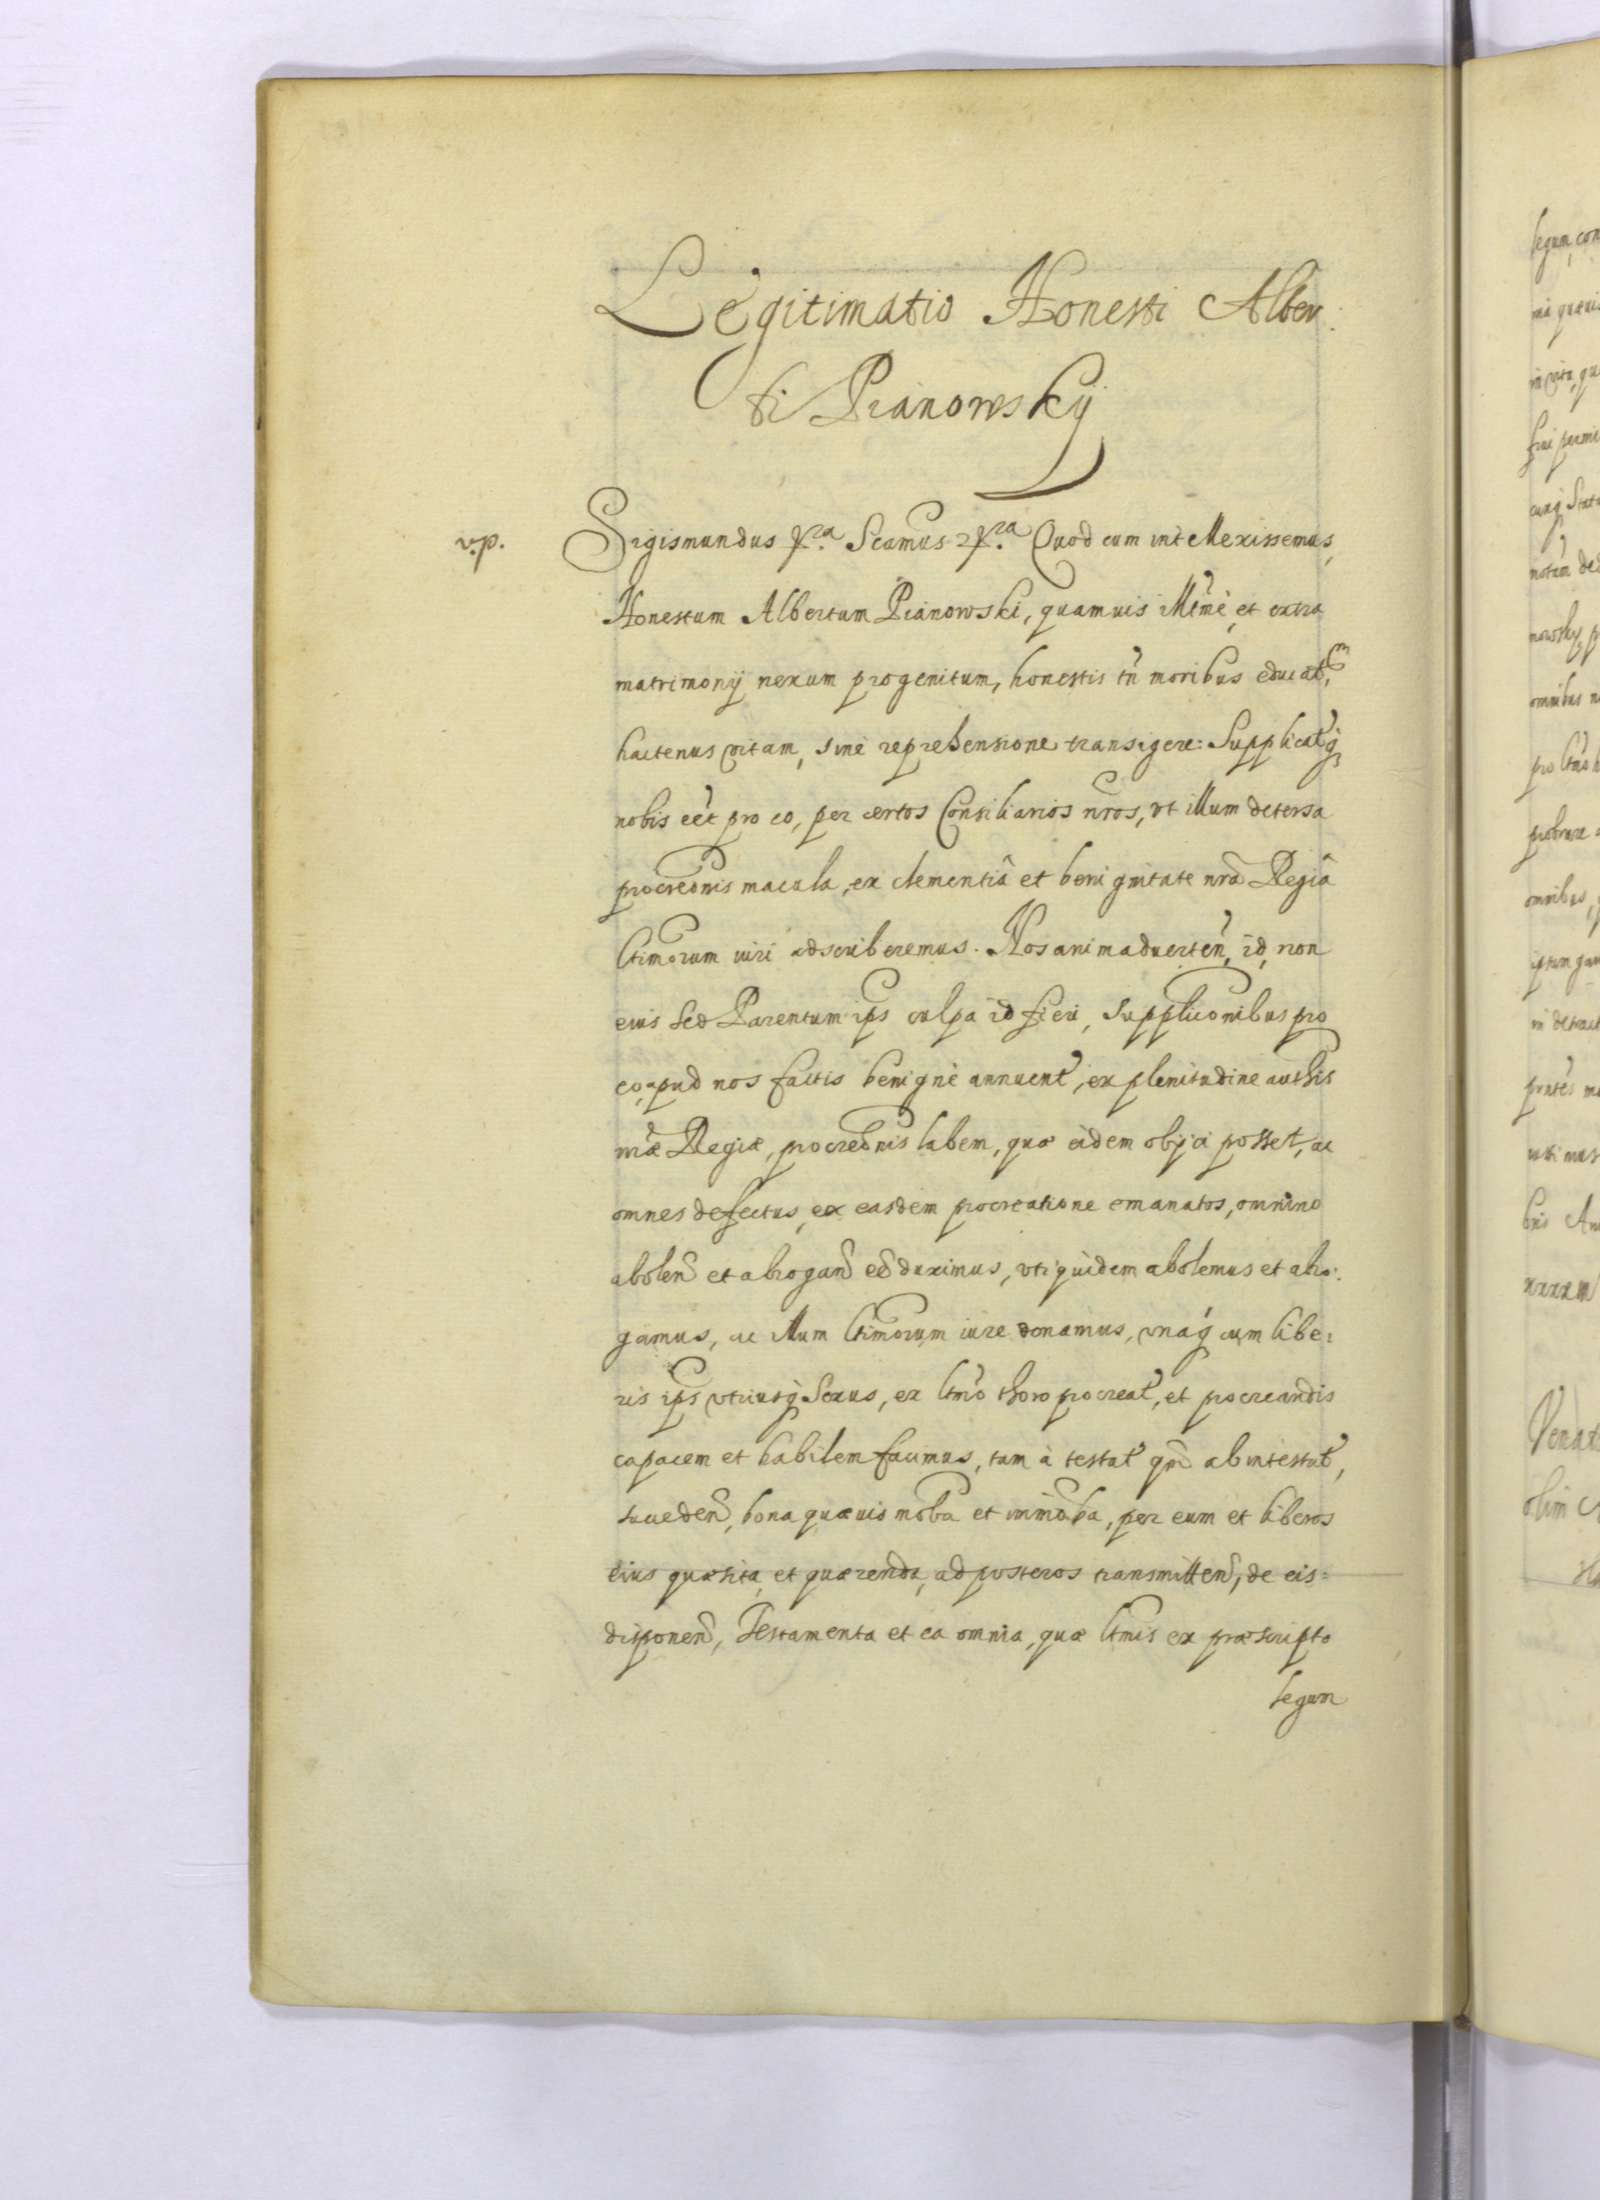 Legitimatio Honesti Alber:
ti Pianowskÿ
v.p. Sigismundus &ra Scamus &ra Quod cum intellexissemus,
Honestum Albertum Pianowski, quamuis illtmè, et extra
matrimonÿ nexum progenitum, honestis tn̄ moribus educat,m
hactenus vitam, sine reprehensione transigere: Supplicatq́
nobis eēt pro eo, per certos Consiliarios nr̄os, vt illum detersa
procreōnis macula, ex clementiâ et benignitate nrā Regiâ
ltimorum iuri adscriberemus. Nos animaduerteñ, id, non
eius sed Parentum ips culpa id fieri, supplicōnibus pro
eo, apud nos factis benignè annuent, ex plenitudine authis
nræ Regiæ, procreōnis labem, quæ eidem obÿci posset, ac
omnes defectus, ex easdem procreatione emanatos, omnino
abolend et abrogand eē duximus, vti quidem abolemus et abro:
gamus, ac illum ltimorum iure donamus, vnáq́ cum libe:
ris ips vtriusq́ Sexus, ex ltmo thoro procreat, et procreandis
capacem et habilem facimus, tam à testat qm̄ ab intestat,
succedeñ, bona quæuis moba et immoba, per eum et liberos
eius quæsita, et quærenda, ad posteros transmitteñ, de eis=
disponeñ, Testamenta et ea omnia, quæ ltmis ex præscripto
legum